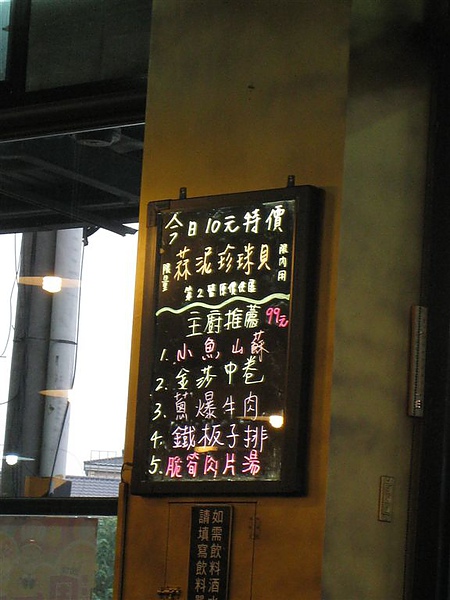 今日10元特價
蒜泥珍珠貝
限量
限內用
第2盤原價優惠
主廚推薦 99元
1. 小魚山蘇
2. 金莎中卷
3. 蔥爆牛肉
4. 鐵板子排
5. 脆筍肉片湯
如需飲料酒水
請填寫飲料單